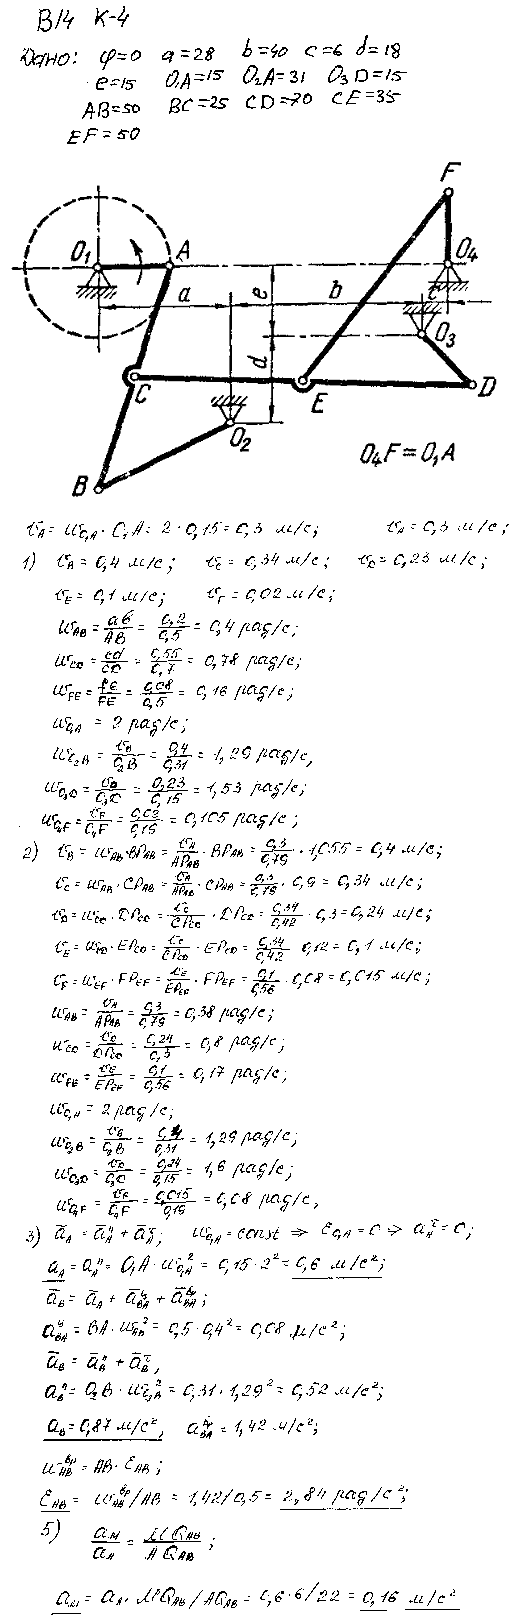 В14 К-4
Дано: φ=0 a=28 b=40 c=6 d=18
e=15 O₁A=15 O₂A=31 O₃D=15
AB=50 BC=25 CD=70 CE=35
EF=50
F
O₁ A O₄
a e b c
O₃
C d E D
O₂
B O₄F=O₁A
v_A = ω_O₁A · O₁A = 2·0,15 = 0,3 м/с; v_A = 0,3 м/с;
1) v_B = 0,4 м/с; v_C = 0,34 м/с; v_D = 0,23 м/с;
v_E = 0,1 м/с; v_F = 0,02 м/с;
ω_AB = ab/AB = 0,2/0,5 = 0,4 рад/с;
ω_CD = cd/CD = 0,55/0,7 = 0,78 рад/с;
ω_FE = fe/FE = 0,08/0,5 = 0,16 рад/с;
ω_O₁A = 2 рад/с;
ω_O₂B = v_B/O₂B = 0,4/0,31 = 1,29 рад/с,
ω_O₃D = v_D/O₃D = 0,23/0,15 = 1,53 рад/с;
ω_O₄F = v_F/O₄F = 0,03/0,15 = 0,105 рад/с;
2) v_B = ω_AB · BP_AB = v_A/AP_AB · BP_AB = 0,3/0,79 · 1,055 = 0,4 м/с;
v_C = ω_AB · CP_AB = v_A/AP_AB · CP_AB = 0,3/0,79 · 0,9 = 0,34 м/с;
v_D = ω_CD · DP_CD = v_C/CP_CD · DP_CD = 0,34/0,42 · 0,3 = 0,24 м/с;
v_E = ω_CD · EP_CD = v_C/CP_CD · EP_CD = 0,34/0,42 · 0,12 = 0,1 м/с;
v_F = ω_EF · FP_EF = v_E/EP_EF · FP_EF = 0,1/0,56 · 0,08 = 0,015 м/с;
ω_AB = v_A/AP_AB = 0,3/0,79 = 0,38 рад/с;
ω_CD = v_D/DP_CD = 0,24/0,3 = 0,8 рад/с;
ω_FE = v_E/EP_EF = 0,1/0,56 = 0,17 рад/с;
ω_O₁A = 2 рад/с;
ω_O₂B = v_B/O₂B = 0,4/0,31 = 1,29 рад/с;
ω_O₃D = v_D/O₃D = 0,24/0,15 = 1,6 рад/с;
ω_O₄F = v_F/O₄F = 0,015/0,15 = 0,08 рад/с,
3) ā_A = ā_A^n + ā_A^τ; ω_O₁A = const ⇒ ε_O₁A = 0 ⇒ a_A^τ = 0;
a_A = a_A^n = O₁A · ω_O₁A² = 0,15·2² = 0,6 м/с²;
ā_B = ā_A + ā_BA^ц + ā_BA^вр;
a_BA^ц = BA · ω_AB² = 0,5·0,4² = 0,08 м/с²;
ā_B = ā_B^n + ā_B^τ,
a_B^n = O₂B · ω_O₂B² = 0,31·1,29² = 0,52 м/с²;
a_B = 0,87 м/с², a_BA^вр = 1,42 м/с²;
ω_AB^вр = AB · ε_AB;
ε_AB = ω_AB^вр/AB = 1,42/0,5 = 2,84 рад/с²;
5) a_M/a_A = MQ_AB/AQ_AB;
a_M = a_A · MQ_AB/AQ_AB = 0,6·6/22 = 0,16 м/с²